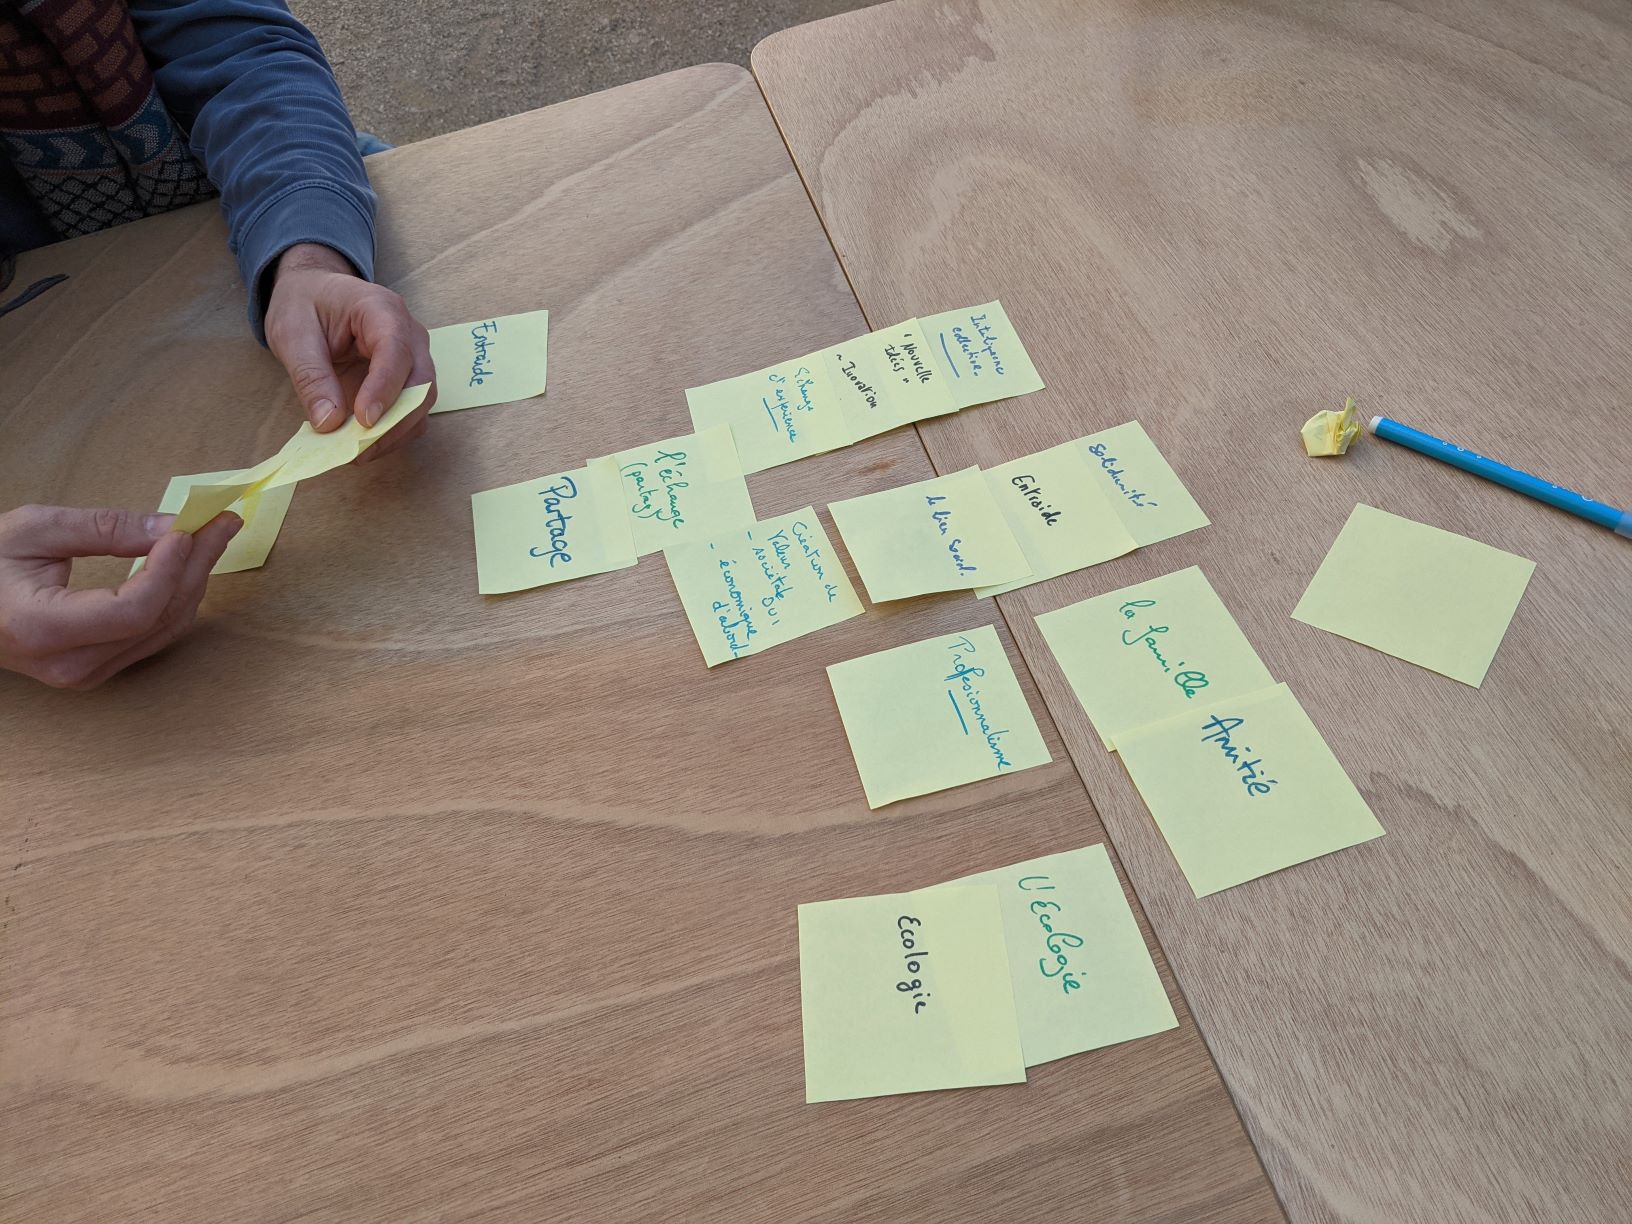 Entraide
Intelligence
collective.
"Nouvelle
Idées"
~ Inovation
Echange
d'expérience
l'échange
(partage)
Partage
Création de
Valeur
- sociétale OUI
- économique
d'abord-
Solidarité
Entraide
le lien social.
la famille
Amitié
Profesionnalisme
L'écologie
Ecologie